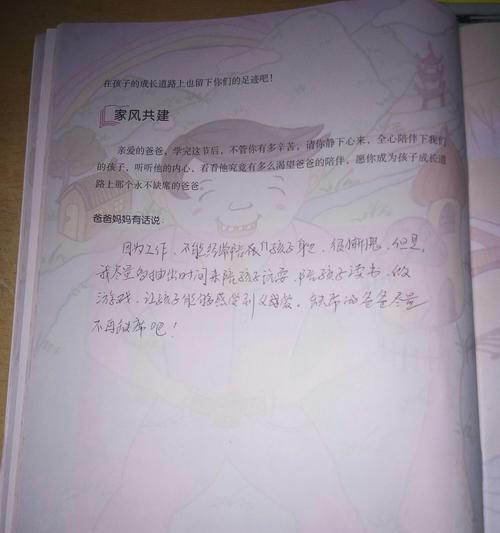 在孩子的成长道路上也留下你们的足迹吧！
家风共建
亲爱的爸爸，学完这节后，不管你有多辛苦，请你静下心来，全心陪伴下我们
的孩子，听听他的内心，看看他究竟有多么渴望爸爸的陪伴，愿你成为孩子成长道
路上那个永不缺席的爸爸。
爸爸妈妈有话说：
因为工作，不能经常陪伴孩子身边，很惭愧，但是，
我尽量抽出时间来陪孩子玩耍，陪孩子读书，做
游戏，让孩子能够感受到父母爱。缺席的爸爸尽量
不再缺席吧！